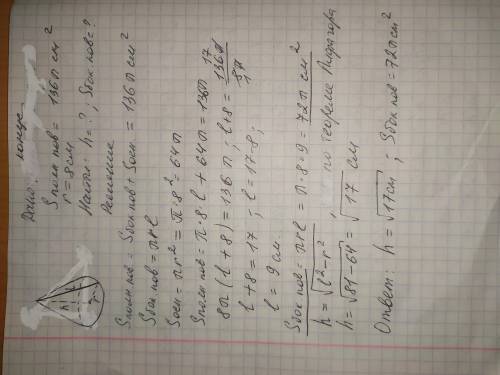 Дано: конус
Sполн пов = 136π см²
r = 8 см
Найти: h = ? ; Sбок пов = ?
Решение
Sполн пов = Sбок пов + Sосн = 136π см²
Sбок пов = πrl
Sосн = πr² = π·8² = 64π
Sполн пов = π·8·l + 64π = 136π
8π(l + 8) = 136π ; l + 8 = 136π/8π 17 1
l + 8 = 17 ; l = 17-8 ;
l = 9 см.
Sбок пов = πrl = π·8·9 = 72π см²
h = √l²-r² , по теореме Пифагора
h = √81-64 = √17 см
Ответ: h = √17 см ; Sбок пов = 72π см²
h l
r